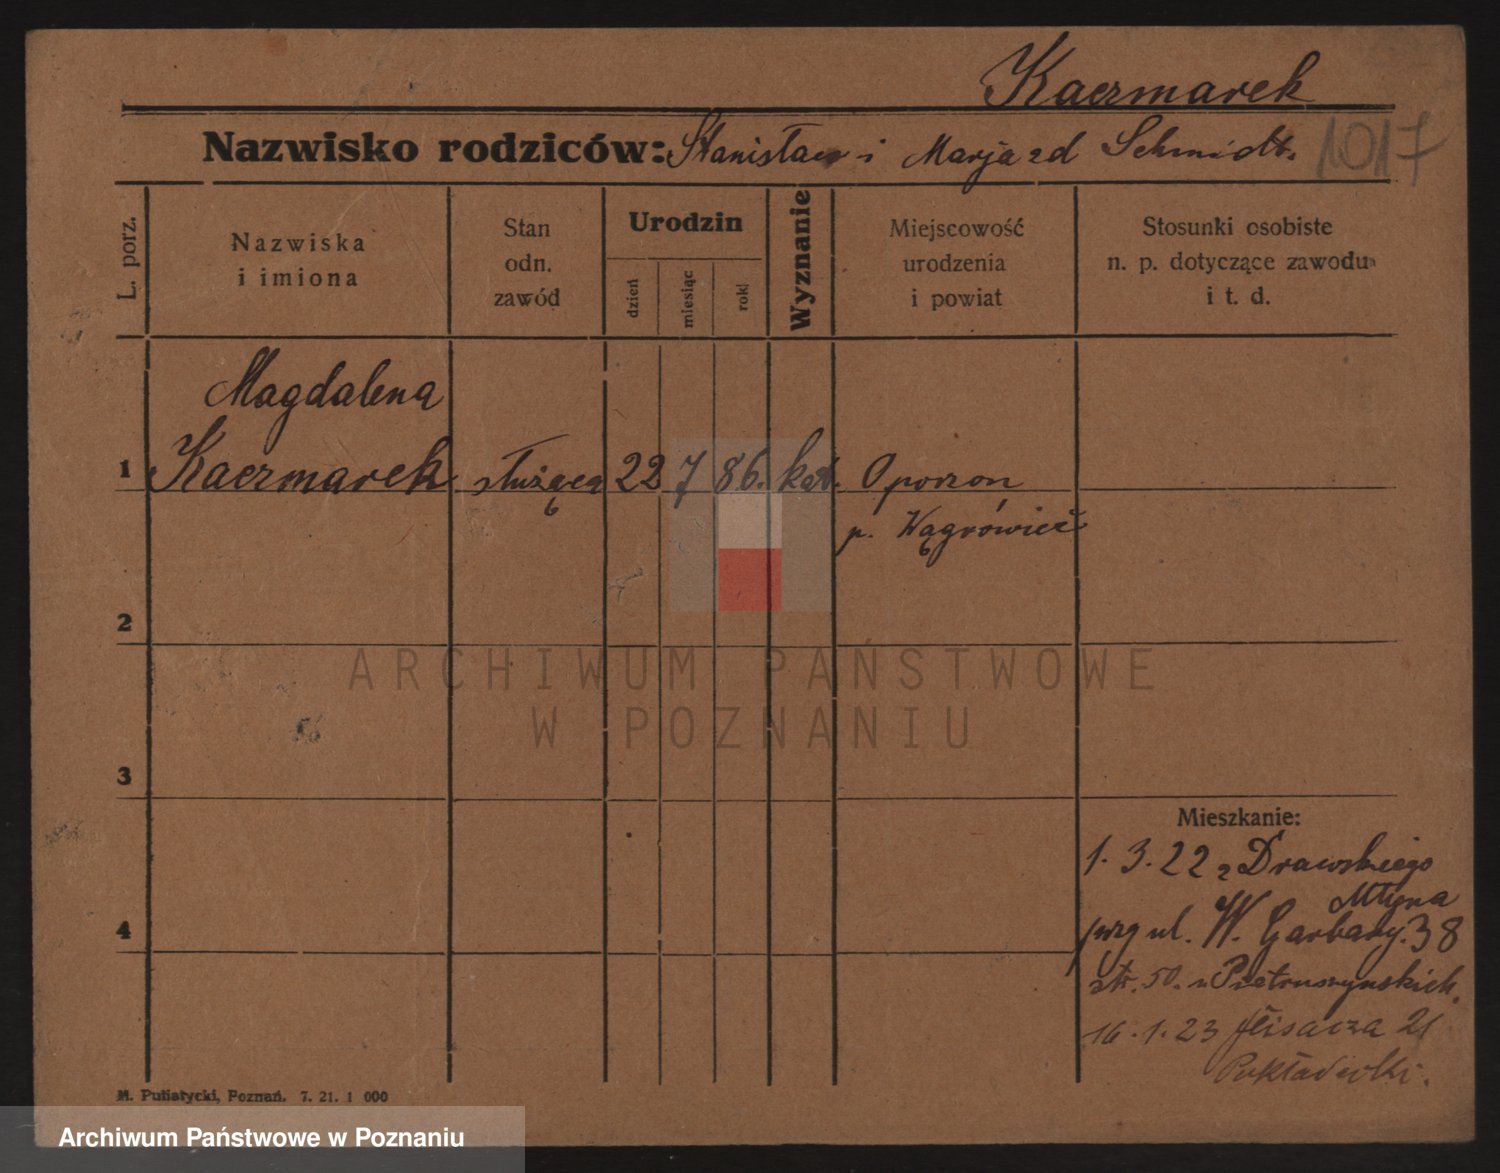 Kaczmarek
Nazwisko rodziców: Stanisław i Marja zd Schmidt.
1017
L. porz.
Nazwiska
i imiona
Stan
odn.
zawód
Urodzin
dzień
miesiąc
rok
Wyznanie
Miejscowość
urodzenia
i powiat
Stosunki osobiste
n. p. dotyczące zawodu
i t. d.
Magdalena
1 Kaczmarek służąca 22 7 86. kat. Oporzon
p. Wągrówiec
2
ARCHIWUM PAŃSTWOWE
W POZNANIU
3
Mieszkanie:
1. 3. 22 z Drawskiego
Młyna
4
ul. W. Garbary. 38
str. 50. u Pietruszyńskich.
16. 1. 23 21
M. Putiatycki, Poznań. 7. 21. 1 000
Archiwum Państwowe w Poznaniu